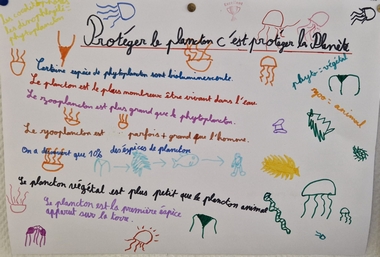 Protéger le plancton c'est protéger la Planète
phyto: végétal
zoo: animal
Certaine espèce de phytoplancton sont bioluminescente.
Le plancton est le plus nombreux être vivant dans l'eau.
Le zooplancton est plus grand que le phytoplancton.
Le zyooplancton est parfois + grand que l'homme.
On a que 10% des éspices de plancton
Le plancton végétal est plus petit que le plancton animal
Le plancton est la première espèce
apparut sur la terre.